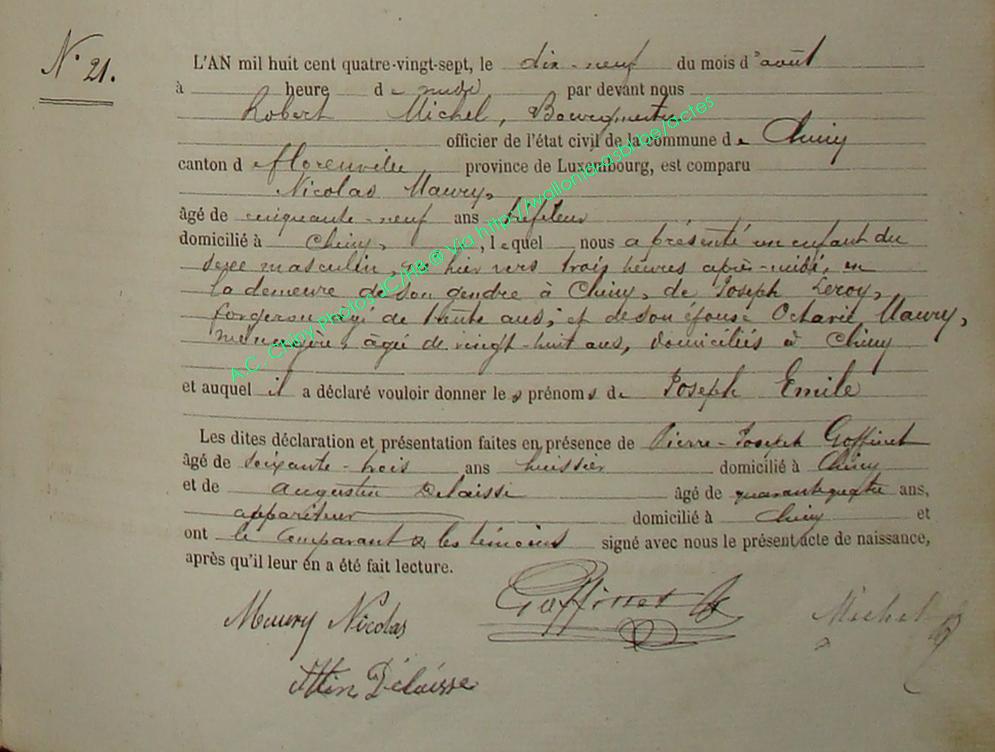 N° 21.
L'AN mil huit cent quatre-vingt-sept, le dix-neuf du mois d'août
à heure de midi par devant nous
Robert Michel, Bourgmestre
officier de l'état civil de la commune de Chiny
canton de florenville province de Luxembourg, est comparu
Nicolas Maury,
âgé de cinquante-neuf ans
domicilié à Chiny, , lequel nous a présenté un enfant du
sexe masculin, né hier vers trois heures après-midi, en
la demeure de son gendre à Chiny, de Joseph Leroy,
forgeron, âgé de trente ans, et de son épouse Octavie Maury,
ménagère, âgée de vingt-huit ans, domiciliés à Chiny
et auquel il a déclaré vouloir donner les prénoms de Joseph Emile
Les dites déclaration et présentation faites en présence de Pierre-Joseph Goffinet
âgé de soixante-trois ans huissier domicilié à Chiny
et de Augustin Delaisse âgé de quarante quatre ans,
appariteur domicilié à Chiny et
ont le comparant & les témoins signé avec nous le présent acte de naissance,
après qu'il leur en a été fait lecture.
Maury Nicolas Goffinet Michel
Attin Délaisse
A.C. Chiny Photos JC/HB ® Via http://wallonia.asbl.be/actes